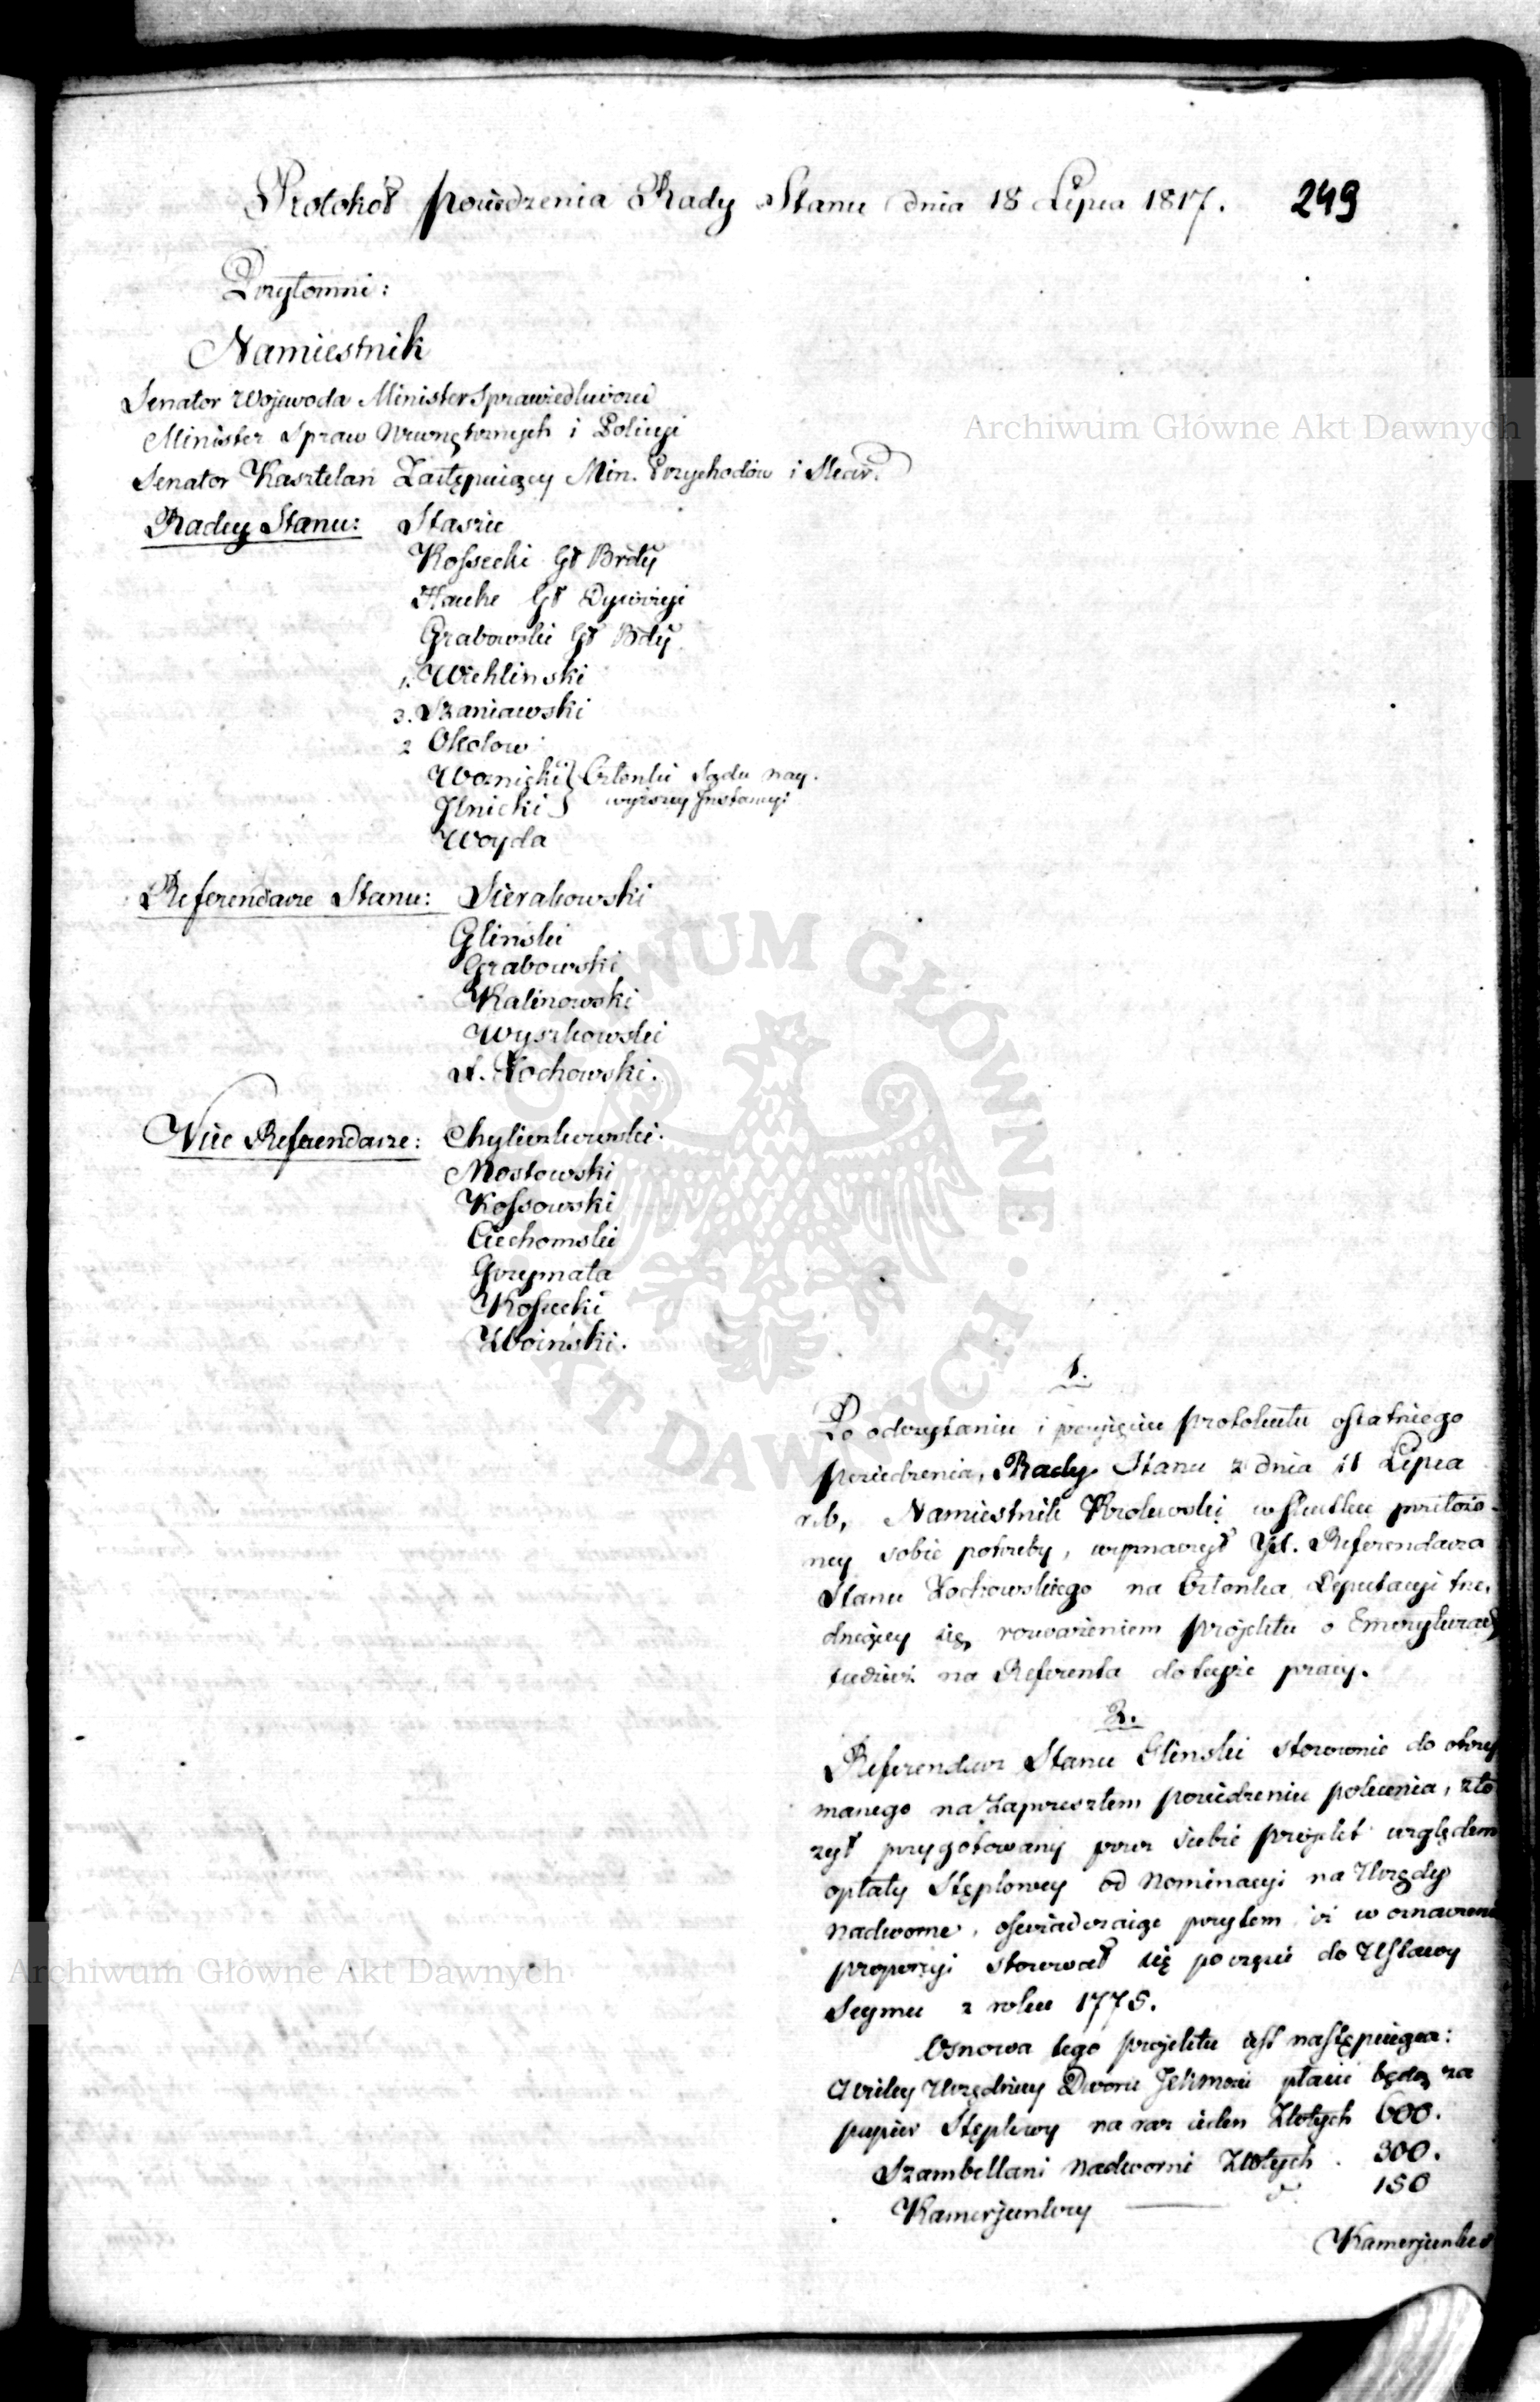 Protokół posiedzenia Rady Stanu dnia 18 Lipca 1817. 249
Przytomni:
Namiestnik
Senator Wojewoda Minister Sprawiedliwości
Minister Spraw Wewnętrznych i Policyi
Senator Kasztelan Zastępuiący Min. Przychodów i Skar.
Radcy Stanu: Staszic
Kossecki Gł Brdy
Hauke Gł Dywizyi
Grabowski Gł Bdy
1. Wichlinski
3. Szaniawski
2 Okołow
Woznicki } Członki Sądu nay.
Ilnicki } wyższey Instancyi
Woyda
Referendarze Stanu: Sierakowski
Gliński
Grabowski
Kalinowski
Wyszkowski
A. Łochowski.
Vice Referendarze: Chyliczkowski.
Mostowski
Kossowski
Ciechomski
Grzymała
Kossecki
Zboiński.
1.
Po odczytaniu i przyięciu protokułu ostatniego
posiedzenia, Rady Stanu z dnia 11 Lipca
r.b, Namiestnik Krolewski w skutku przełożo-
ney sobie potrzeby, wyznaczył Referendarza
Stanu Łochowskiego na Członka Deputacyi tru,
dniącey się, rozważeniem projektu o Emeryturach
tudzież na Referenta do teyże pracy.
2.
Referendarz Stanu Glinski stosownie do otrzy
manego na zaprzeszłem posiedzeniu polecenia, zło
żył przygotowany przez siebie projekt względem
opłaty Stęplowey od Nominacyi na Urzędy
Nadworne, oświadczaiąc przytem iż w oznaczeniu
proporcyi stosował się po części do Ustawy
Seymu z roku 1775.
Osnowa tego projektu iest następuiąca:
Wielcy Urzędnicy Dworu płacić będą za
papier Stęplowy na raz ieden Złotych 600.
Szambellani Nadworni Złotych . 300.
Kamerjunkry — 150
Kamerjunkro
Archiwum Główne Akt Dawnych
ARCHIWUM GŁÓWNE AKT DAWNYCH
Archiwum Główne Akt Dawnych